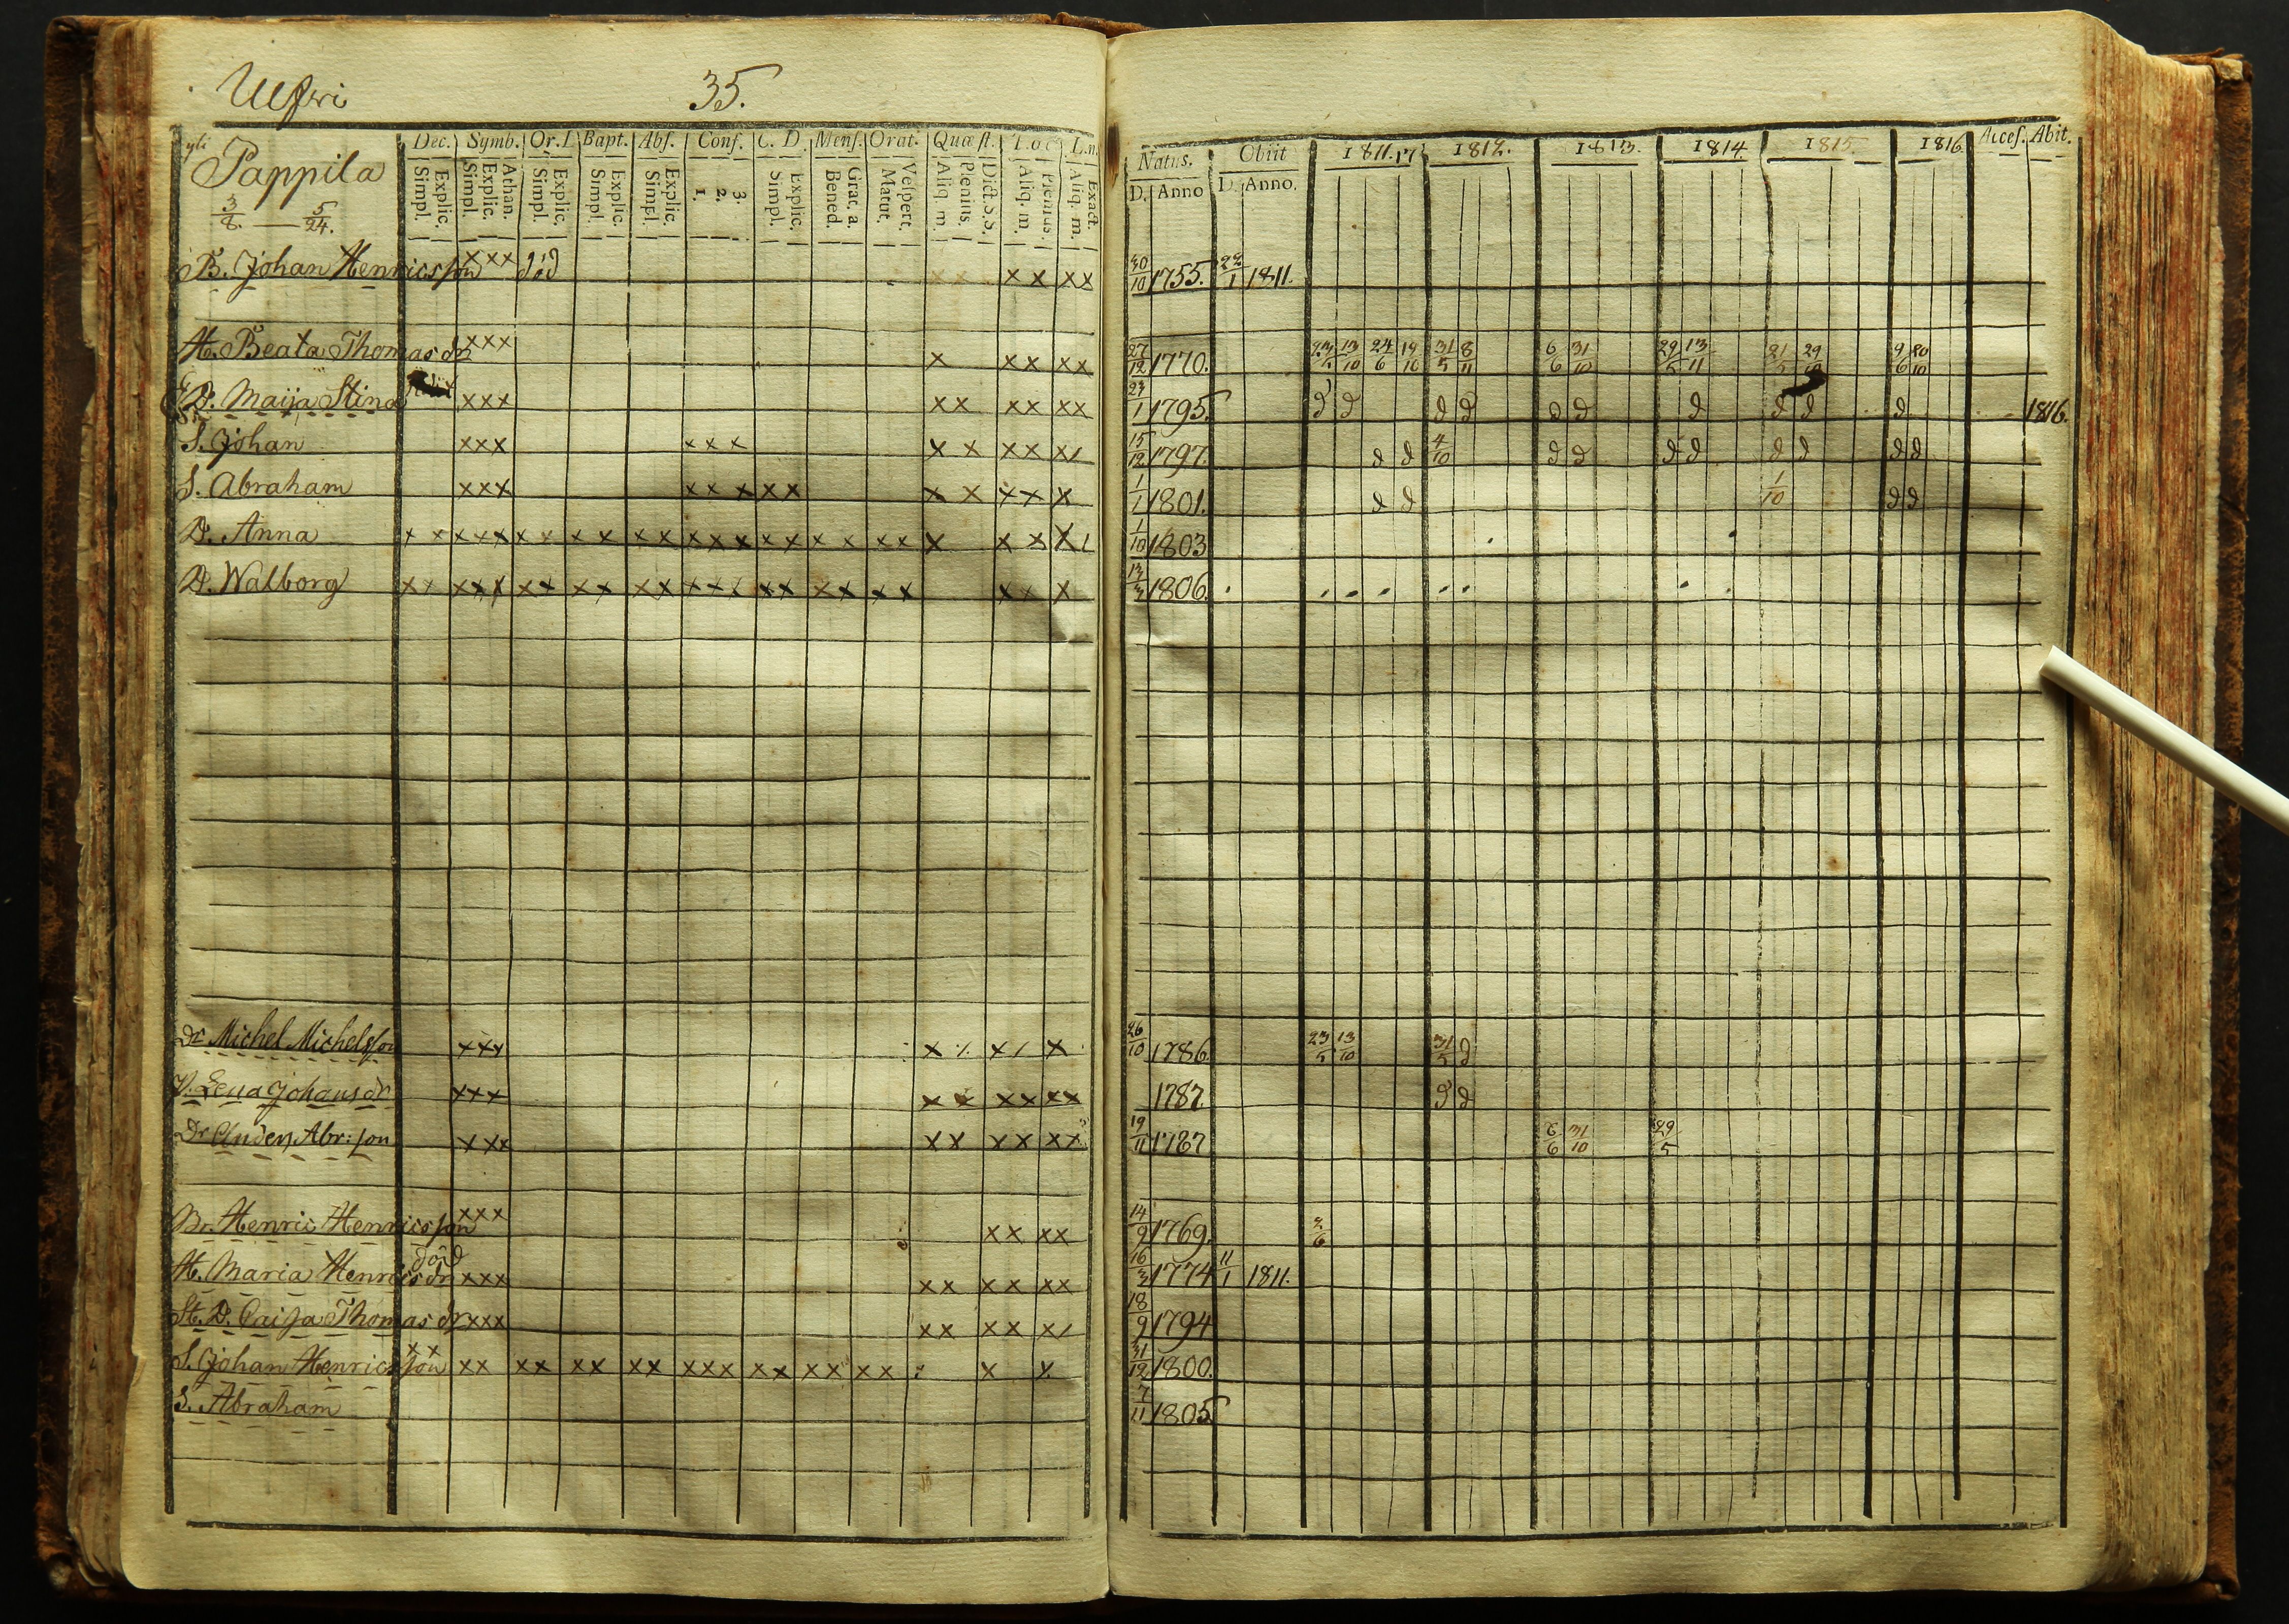 35.
Pappila
3/8. — 5/24.
Dec. Symb. Or. Bapt. Abs. Conf. C. D. Mens. Orat. Quæst. L.n.
Explic. Simpl. Athan. Explic. Simpl. Explic. Simpl. Explic. Simpl. Explic. Simpl. 3. 2. 1. Explic. Simpl. Grat. a. Bened. Vespert. Matut. Dict. S.S. Plenius. Aliq. m. Plenius. Aliq. m. Exact. Aliq. m.
Natus. Obiit 1811. 1812. 1813. 1814. 1815. 1816. Acces. Abit.
D. Anno D. Anno.
B. Johan Henricsson xxx död xx xx 30/10 1755. 22/1 1811.
H. Beata Thomasdr xxx x xx xx 27/12 1770. 23/5 13/10 24/6 19/10 31/5 8/11 6/6 31/10 29/5 13/11 21/5 29/10 9/6 20/10
D. Maija Stina xxx xx xx xx 1795. d d d d d d d d d d 1816.
S. Johan xxx xxx x x xx x/ 15/12 1797. d d 4/10 d d d d d d d d
S. Abraham xxx xxx xx x x xxx x 1/1 1801. d d 1/10 d d
D. Anna x x xxx xx xx xx xxx xx xx xx x x x x 1/10 1803
D. Walborg xx xxx xx xx xx xxx xx xx xx xx x 13/3 1806.
Dr Michel Michelsson xxx x x/ x 26/10 1786. 23/5 13/10 31/5 d
P. Lena Johansdr xxx x x xx xx 1787 d d
Dr Anders Abr:son xxx xx xx xx 19/11 1787 6/6 31/10 29/5
Br. Henric Henricsson xxx xx xx 14/9 1769.
H. Maria Henricsdr död xxx xx xx xx 16/3 1774 11/1 1811.
St. D. Caisa Thomasdr xxx xx xx x/ 18/9 1794
S. Johan Henricsson xx xx xx xx xx xxx xx xx xx x x 31/12 1800.
S. Abraham 7/11 1805